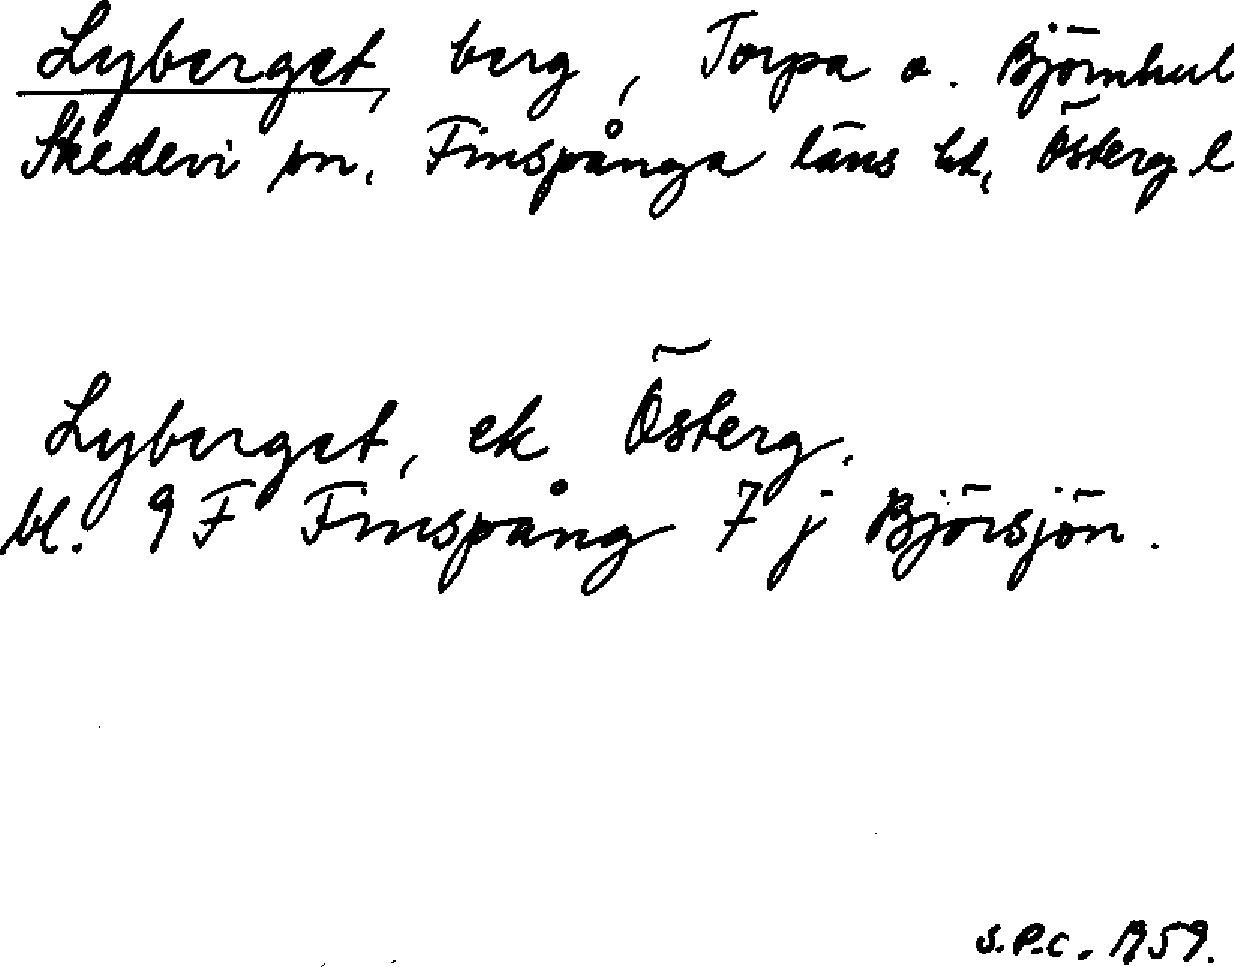 Lyberget, berg, Torpa o. Björnhul
Skedevi sn, Finspånga läns hd, Österg l
Lyberget, ek Österg.
bl. 9 F Finspång 7 j Björsjön.
S.P.C. 1959.